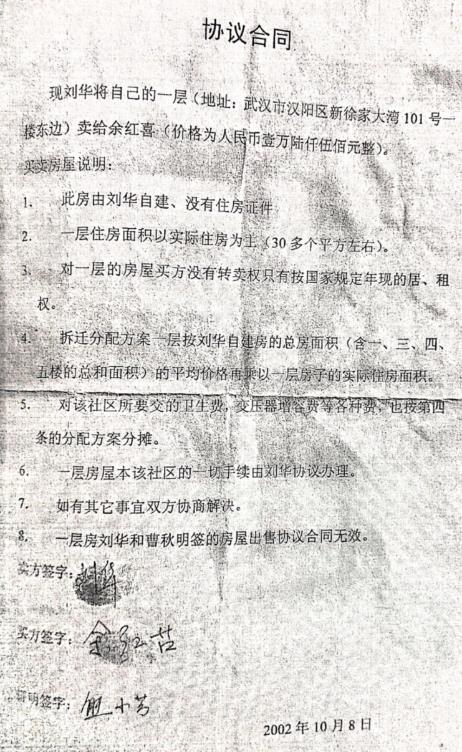 协议合同
现刘华将自己的一层（地址：武汉市汉阳区新徐家大湾101号一
楼东边）卖给余红喜（价格为人民币壹万陆仟伍佰元整）。
买卖房屋说明：
1. 此房由刘华自建、没有住房证件
2. 一层住房面积以实际住房为主（30多个平方左右）。
3. 对一层的房屋买方没有转卖权只有按国家规定年现的居、租
权。
4. 拆迁分配方案一层按刘华自建房的总房面积（含一、三、四、
五楼的总和面积）的平均价格再乘以一层房子的实际住房面积。
5. 对该社区所要交的卫生费，变压器增容费等各种费，也按第四
条的分配方案分摊。
6. 一层房屋本该社区的一切手续由刘华协议办理。
7. 如有其它事宜双方协商解决。
8. 一层房刘华和曹秋明签的房屋出售协议合同无效。
卖方签字：刘华
买方签字：余红
证明签字：熊小芳
2002年10月8日